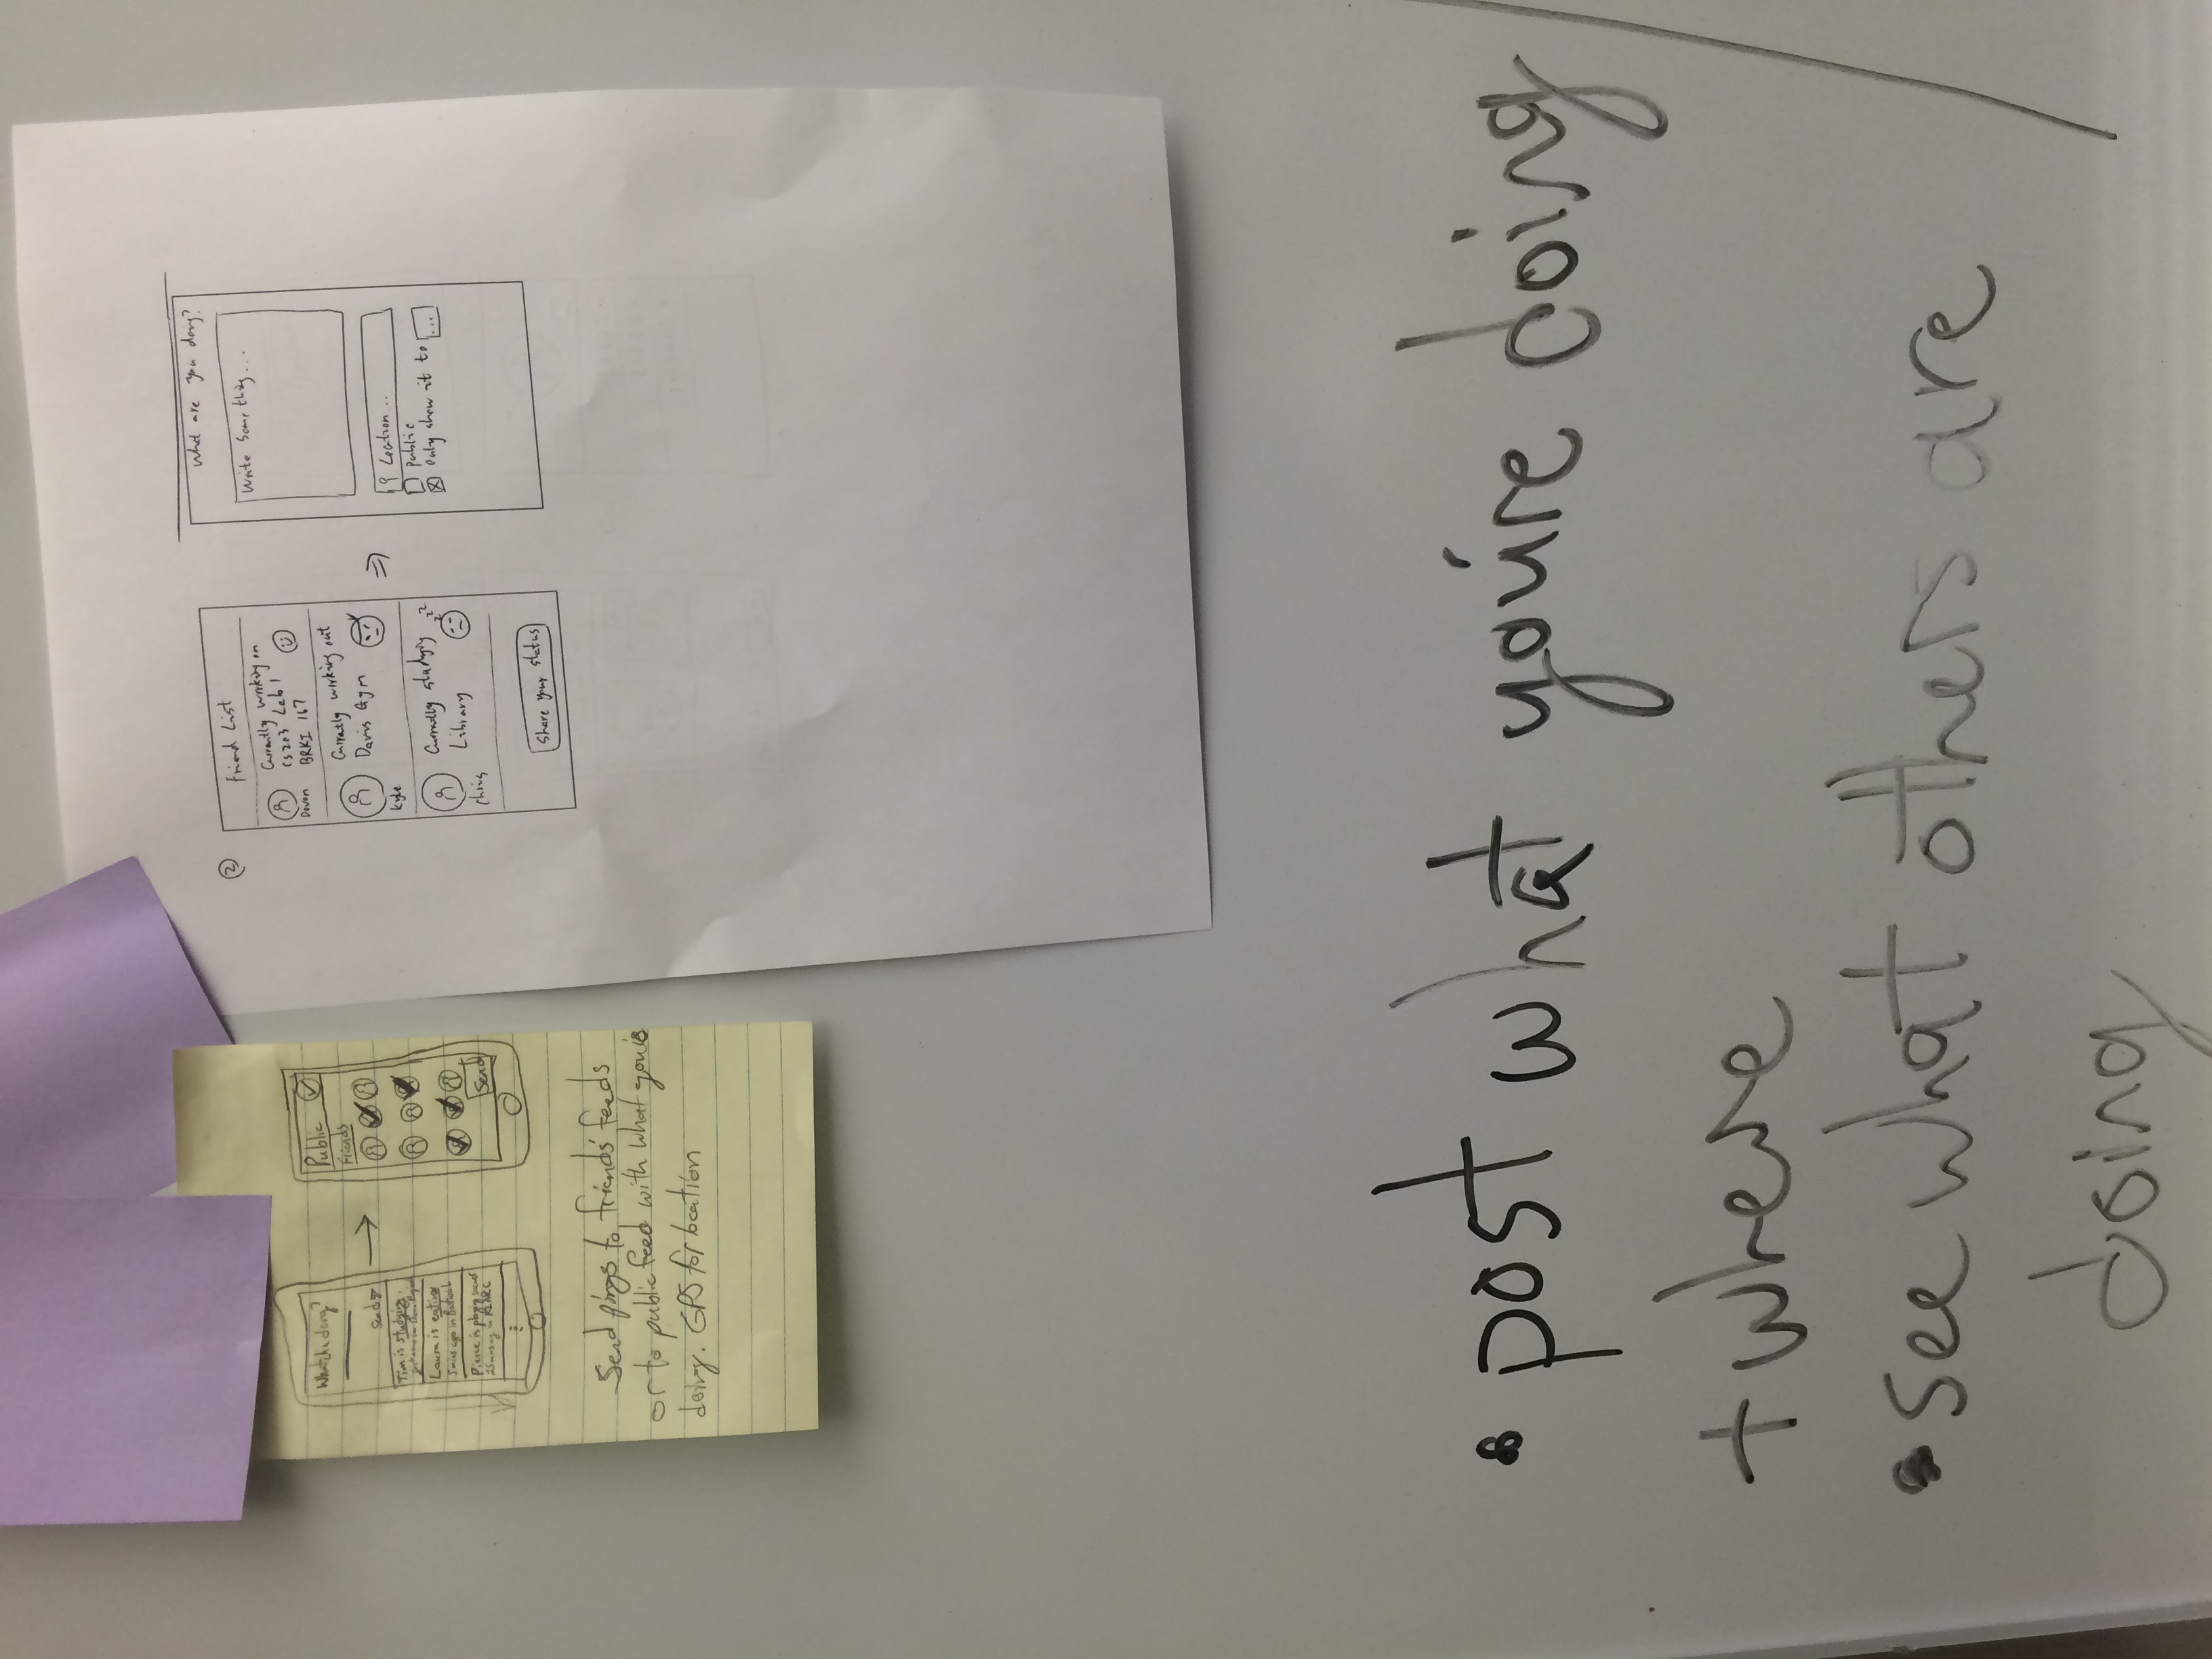 Whatcha doing?
Send
Tim is studying
Laura is eating
5 mins ago in
Pierce is playing soccer
25 mins ago in KLARC
Public
Friends
Send
Send pings to friends' feeds
or to public feed with what you're
doing. GPS for location
②
Friend List
Currently working on
Lab 1
BRKI 167
Devon
Currently working out
Davis Gym
Kyle
Currently studying
zzz
Library
Chris
Share your status
What are you doing?
Write something...
Location...
public
only show it to ...
• post what you're doing
+ where
• see what others are
doing